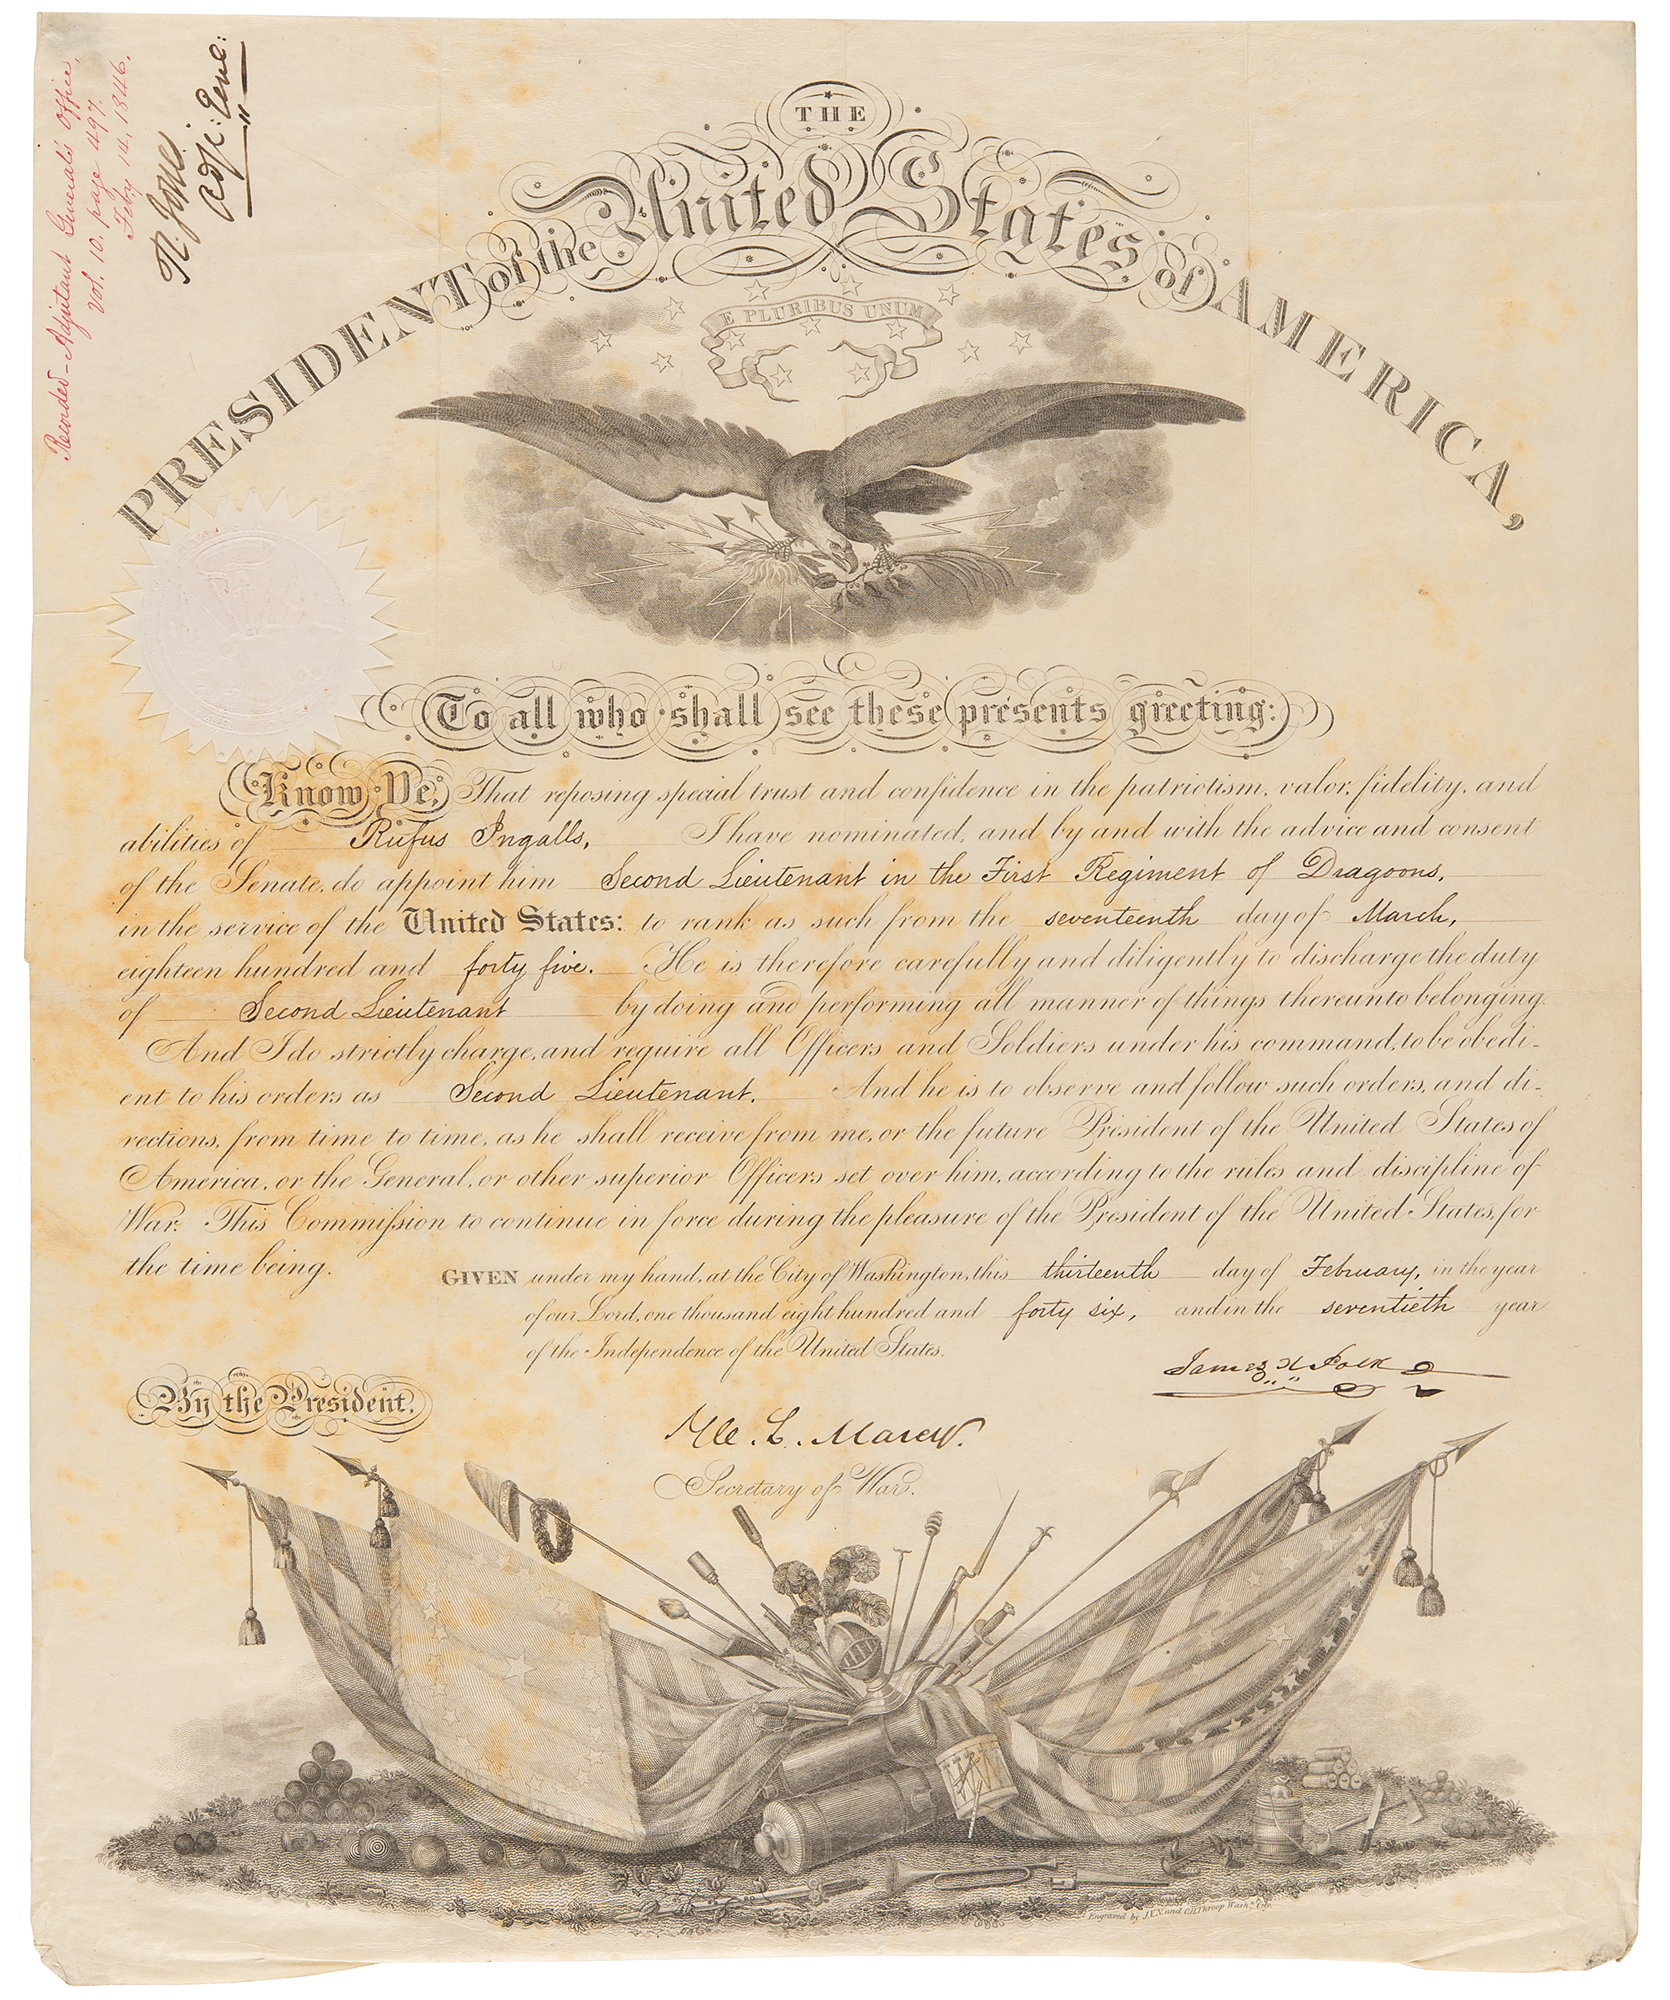 Recorded - Adjutant General's Office,
vol. 10. page 497.
Feby 14, 1846.
R. Jones.
Adjt: Genl:
THE
PRESIDENT of the United States of AMERICA,
E PLURIBUS UNUM
To all who shall see these presents greeting:
Know Ye, That reposing special trust and confidence in the patriotism, valor, fidelity, and
abilities of Rufus Ingalls, I have nominated, and by and with the advice and consent
of the Senate, do appoint him Second Lieutenant in the First Regiment of Dragoons,
in the service of the United States: to rank as such from the seventeenth day of March,
eighteen hundred and forty five. He is therefore carefully and diligently to discharge the duty
of Second Lieutenant by doing and performing all manner of things thereunto belonging.
And I do strictly charge, and require all Officers and Soldiers under his command, to be obedi-
ent to his orders as Second Lieutenant. And he is to observe and follow such orders, and di-
rections, from time to time, as he shall receive from me, or the future President of the United States of
America, or the General, or other superior Officers set over him, according to the rules and discipline of
War. This Commission to continue in force during the pleasure of the President of the United States, for
the time being.
GIVEN under my hand, at the City of Washington, this thirteenth day of February, in the year
of our Lord, one thousand eight hundred and forty six, and in the seventieth year
of the Independence of the United States.
James K Polk
By the President.
W. L. Marcy.
Secretary of War.
Engraved by J.V.N. and O.H. Throop Washn. City.